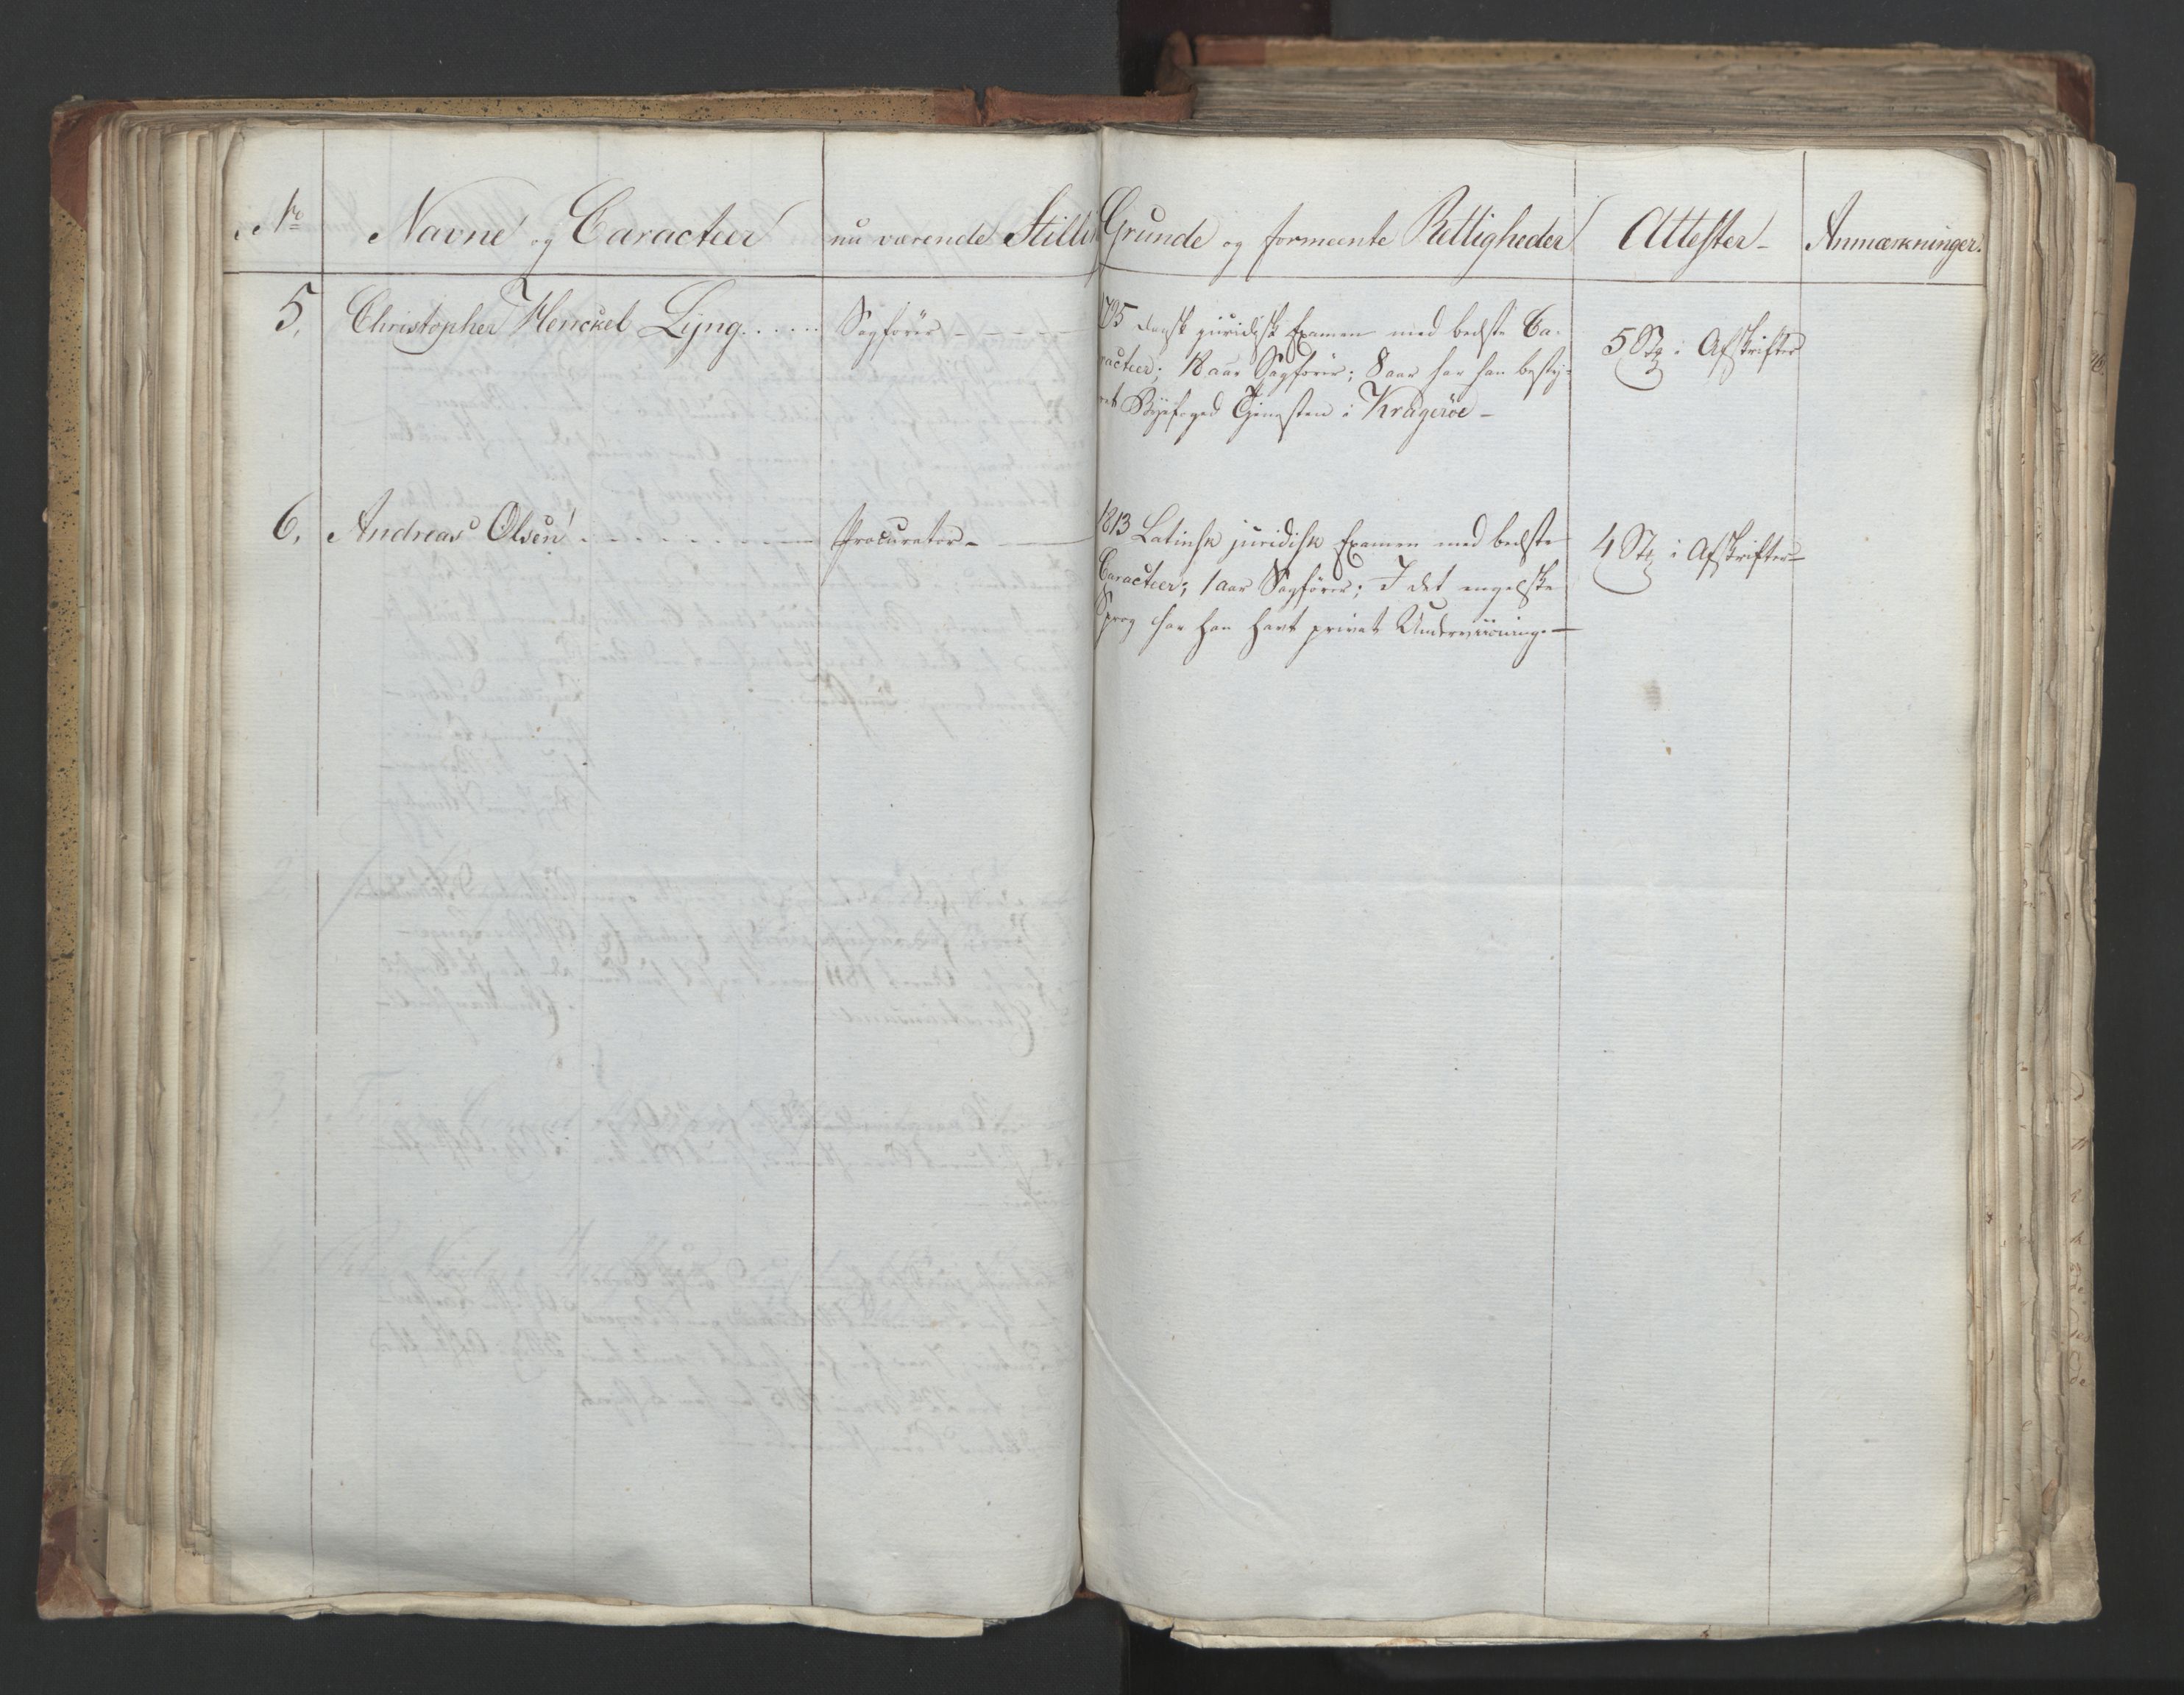 No Navne og Caracteer nu værende Stillin Grunde og formeente Rettigheder Attester- Anmærkninger.
5. Christopher Henckel Lÿng...... Sagfører - - - -
795 dansk juridisk Examen med bedste Ca-
racteer; 18 aar Sagfører; 8 aar har han besty-
ret Byefoged Tjenesten i Kragerøe -
5 Stk i Afskrifter
6. Andreas Olsen - - - - - - - Procurator -
1813 Latinsk juridisk Examen med bedste
Caracteer; 1 aar Sagfører; I det engelske
Sprog har han havt privat Underviisning. -
4 Stk i Afskrifter -